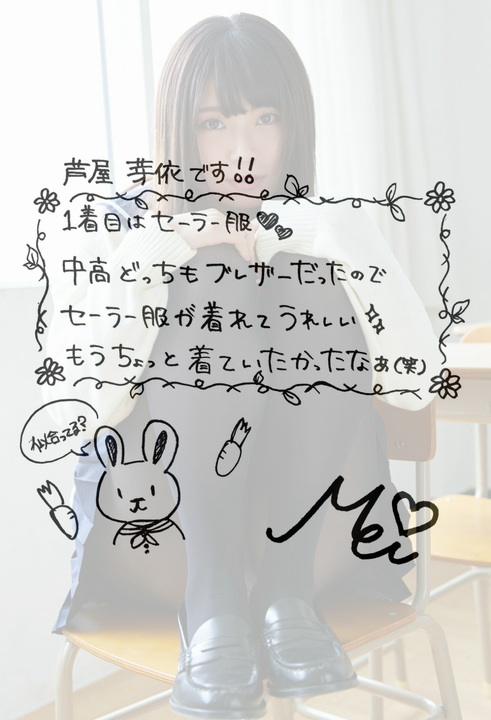 芦屋 芽依です!!
1着目はセーラー服♥♥
中高どっちもブレザーだったので
セーラー服が着れてうれしい✨
もうちょっと着ていたかったなぁ(笑)
似合ってる?
Mei♡